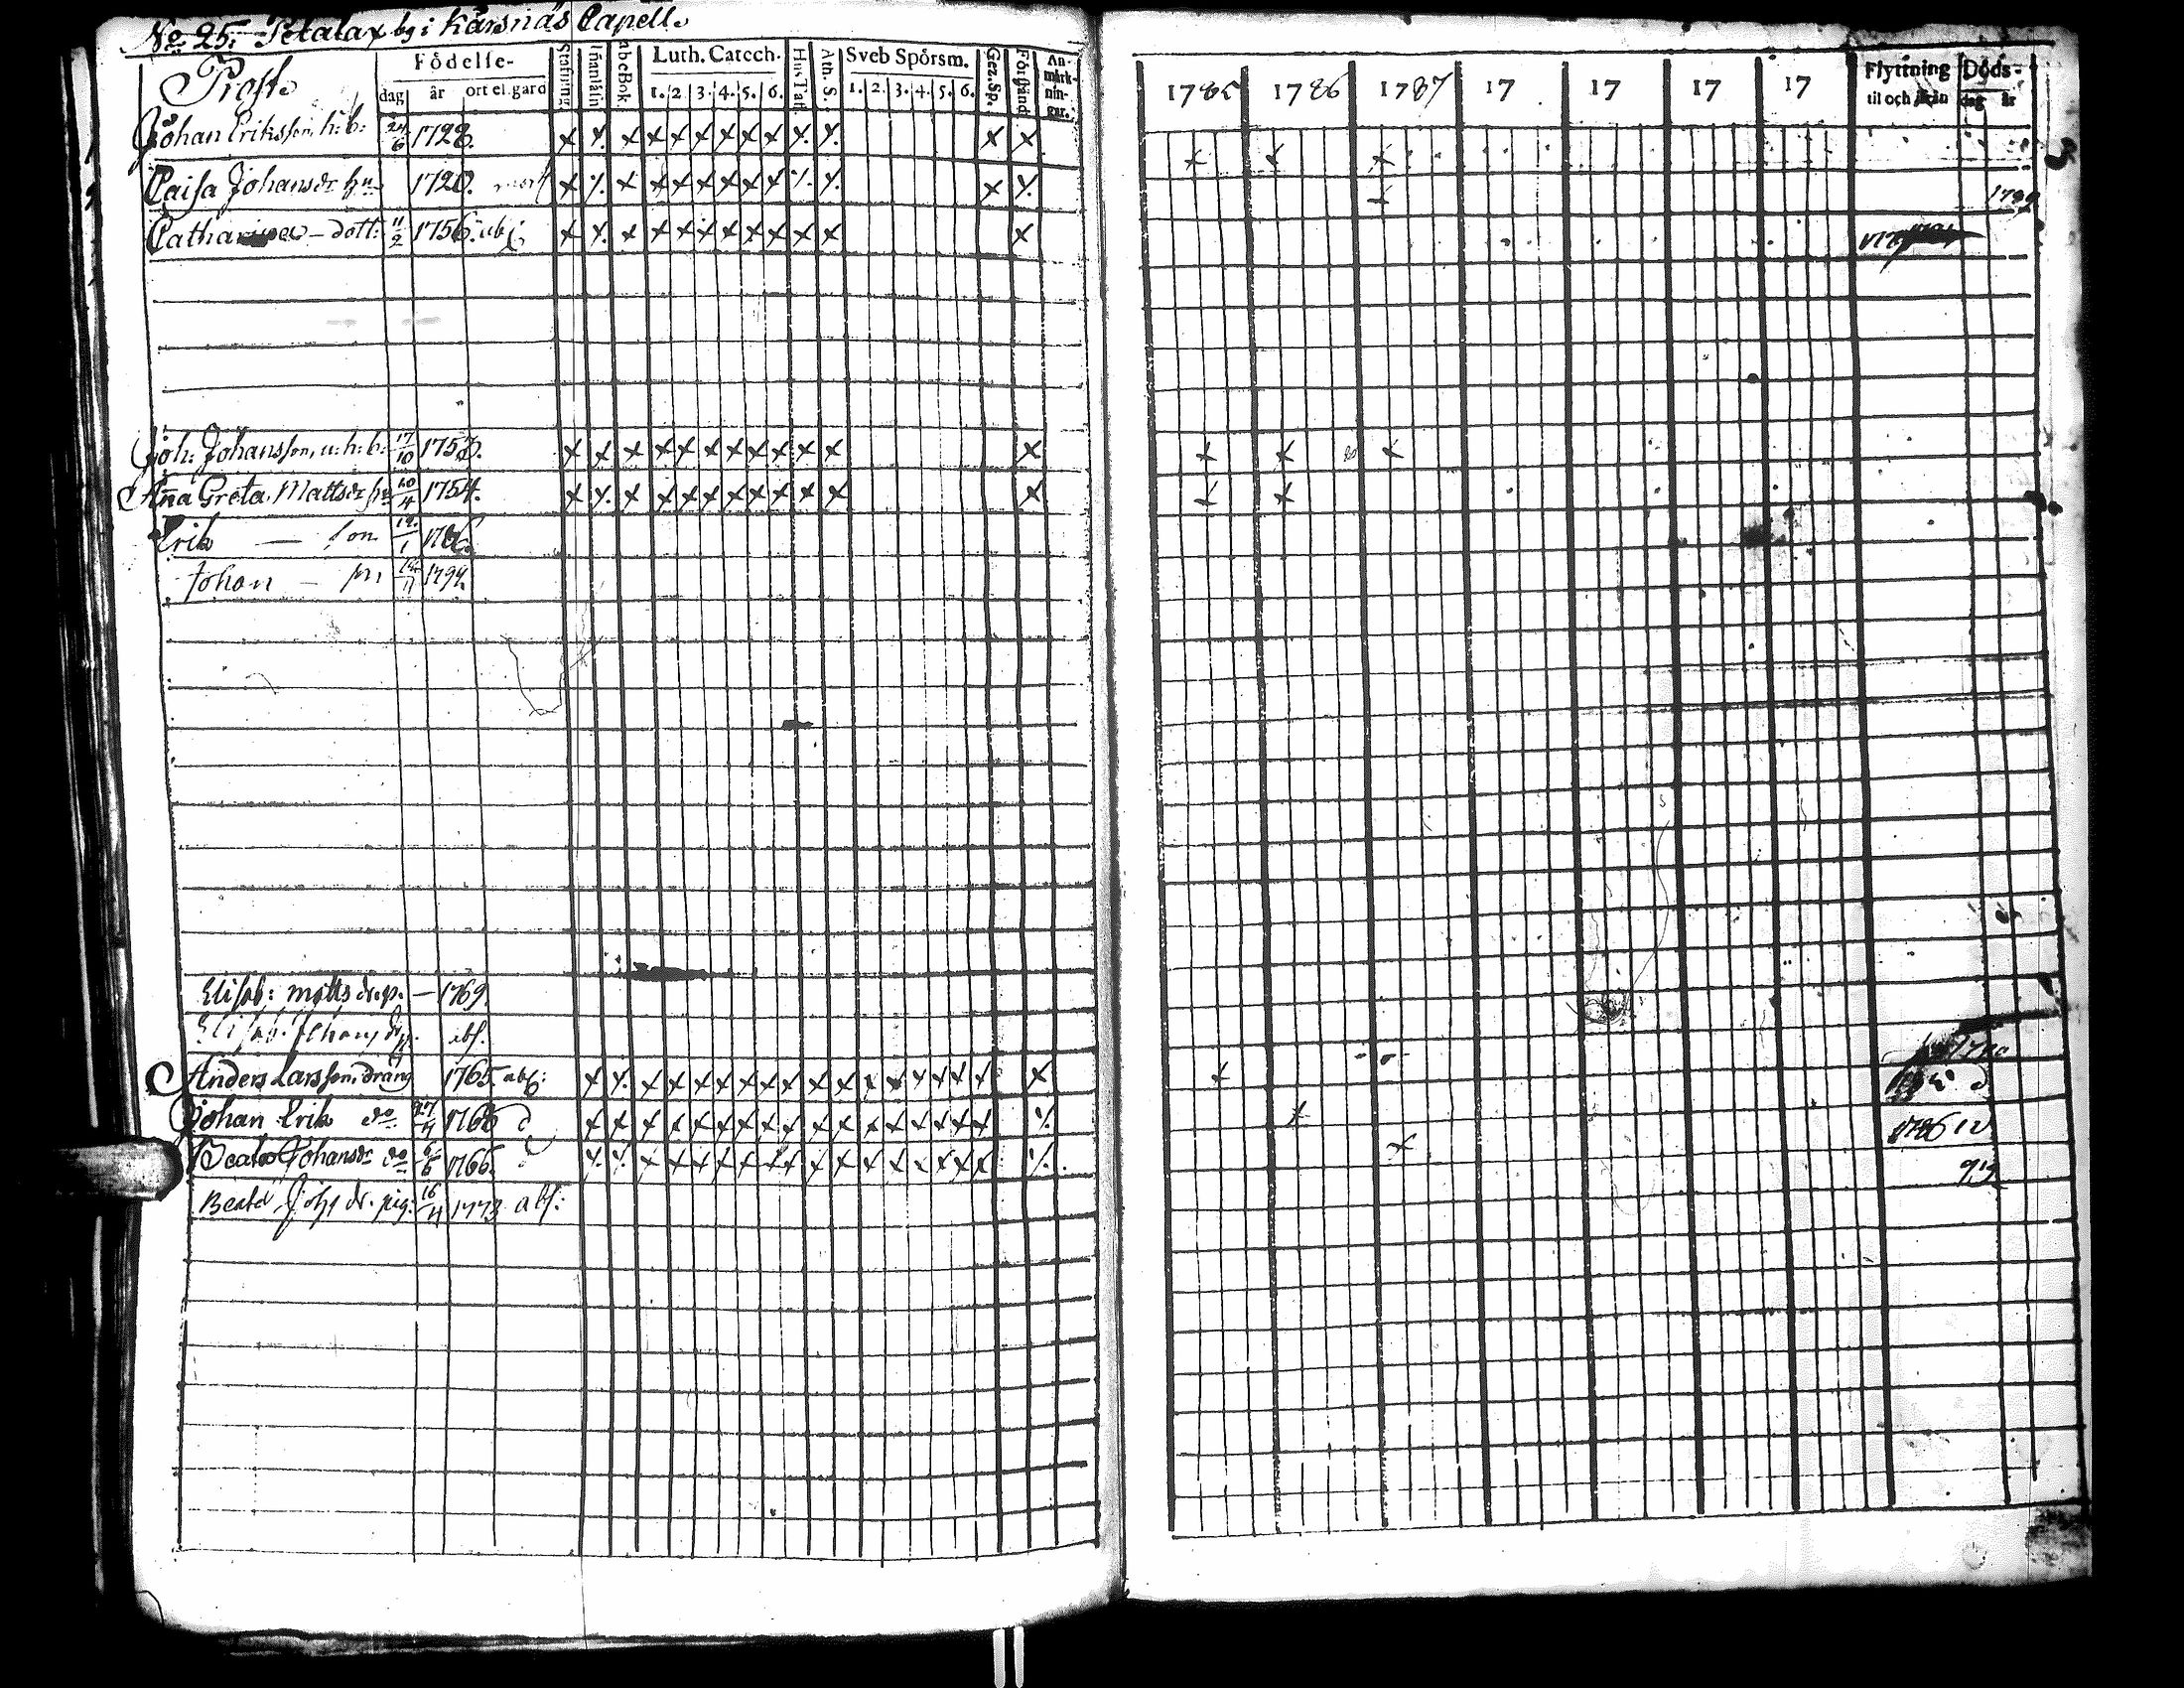 No 25. Petalax by i Kårsnäs Capell.
Prost. Födelse- Stafning Innanläsn abcBok Luth. Catech. Hus Tafl Ath. S. Sveb Spörsm. Gez. Sp. Förstånd An-märk-nin-gar. 1785 1786 1787 17 17 17 17 Flyttning Döds-
dag år ort el. gård 1. 2 3. 4. 5. 6. 1. 2. 3. 4. 5. 6. til och ifrån dag år
Johan Eriksson, h: b: 24/6 1728. x ⁒ x x x x x x x ⁒ ⁒ x x x x x
Caisa Johansdr hu 1720. x ⁒ x x x x x x x ⁒ ⁒ x ⁒ x
Catharina - dott: 11/2 1756. abs x ⁒ x x x x x x x x x x
Joh: Johansson, u: h: b: 17/10 1753. x x x x x x x x x x x x x x x
Anna Greta Mattsdr hu 20/4 1754. x ⁒ x x x x x x x x x x x x
Erik — son 19/1
Johan — son 1794.
Elisab: Matts dr. p. — 1769.
Elisab. Johans dr p. abs.
Anders Larsson, dräng 1765. abs: x ⁒ x x x x x x x x x x x x x x x x x
Johan Erik do 27/4 1766 x x x x x x x x x x x x x x x x x ⁒ x 1786
Beata Johansdr do 6/6 1766. ⁒ ⁒ x x x x x x x x x x x x x x x ⁒ x
Beata Johs dr. pig: 16/4 1773 abs: